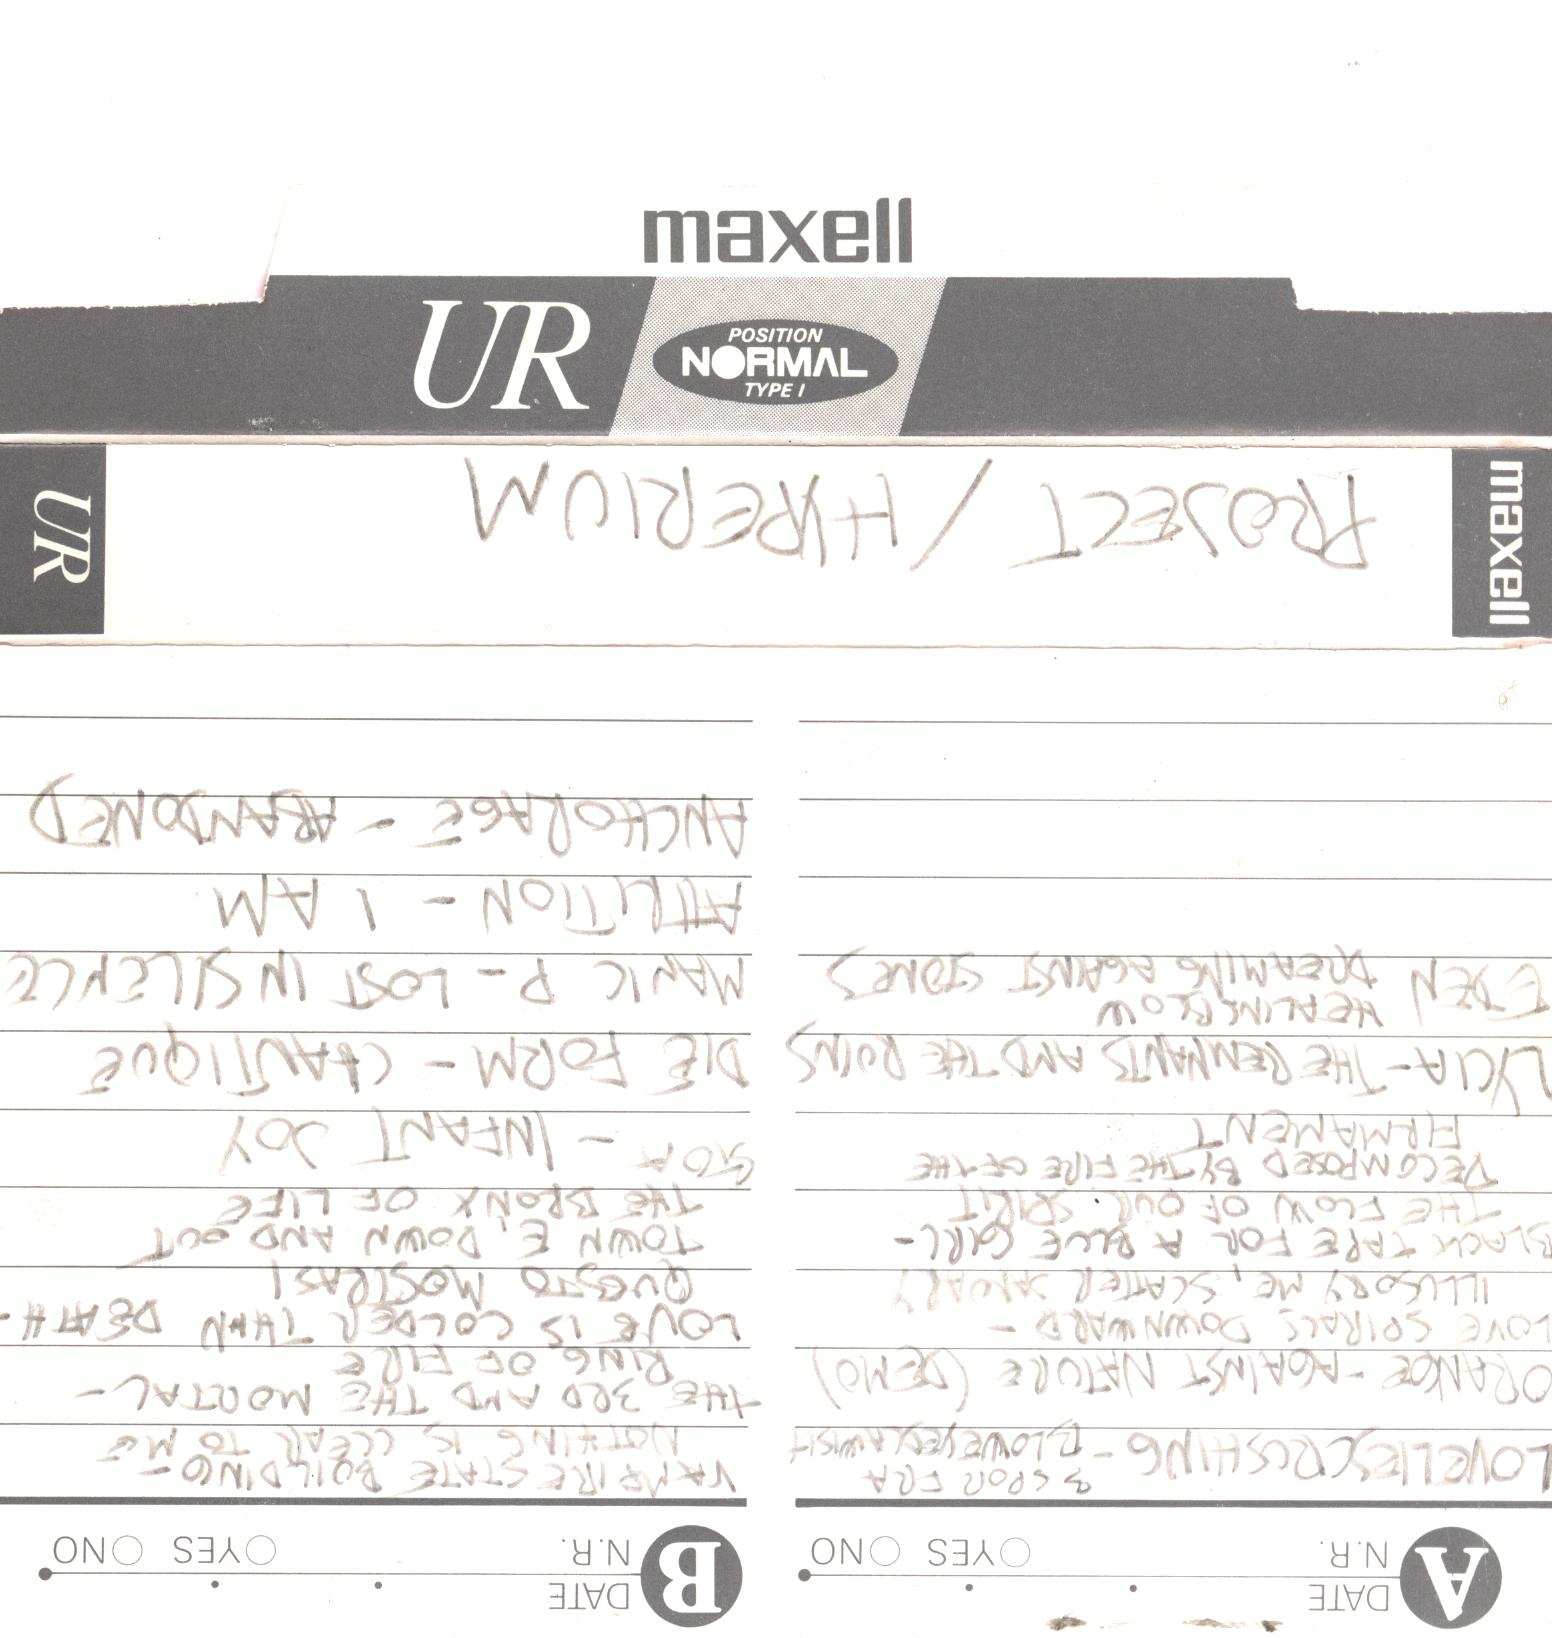 maxell
UR
POSITION
NORMAL
TYPE I
maxell
PROJECT / HYPERIUM
UR
A
DATE
N.R. YES NO
LOVELIESCRUSHING - 3 SPOR FRA
BLOWEYELAWISH
ORANGE - AGAINST NATURE (DEMO)
LOVE SPIRALS DOWNWARD -
ILLUSORY ME, SCATTER JANUARY
BLACK TAPE FOR A BLUE GIRL -
THE FLOW OF OUR SPIRIT
DECOMPOSED BY THE FIRE OF THE
FIRMAMENT
LYCIA - THE REMNANTS AND THE RUINS
EDEN HEALINGBLOW
DREAMING AGAINST STONES
B
DATE
N.R. YES NO
VAMPIRE STATE BUILDING -
NOTHING IS CLEAR TO ME
THE 3RD AND THE MORTAL -
RING OF FIRE
LOVE IS COLDER THAN DEATH -
QUESTO MOSTRASI
TOWN E, DOWN AND OUT
THE BRONX OF LIFE
STOA - INFANT JOY
DIE FORM - CHANTIQUE
MANIC P - LOST IN SILENCE
ATTRITION - I AM
ANCHORAGE - ABANDONED